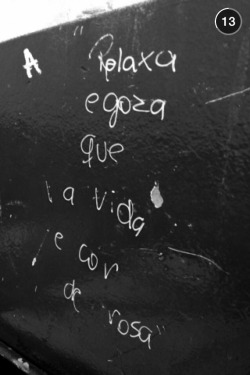 13
A "Relaxa
e goza
que
la vida
e cor
de rosa"